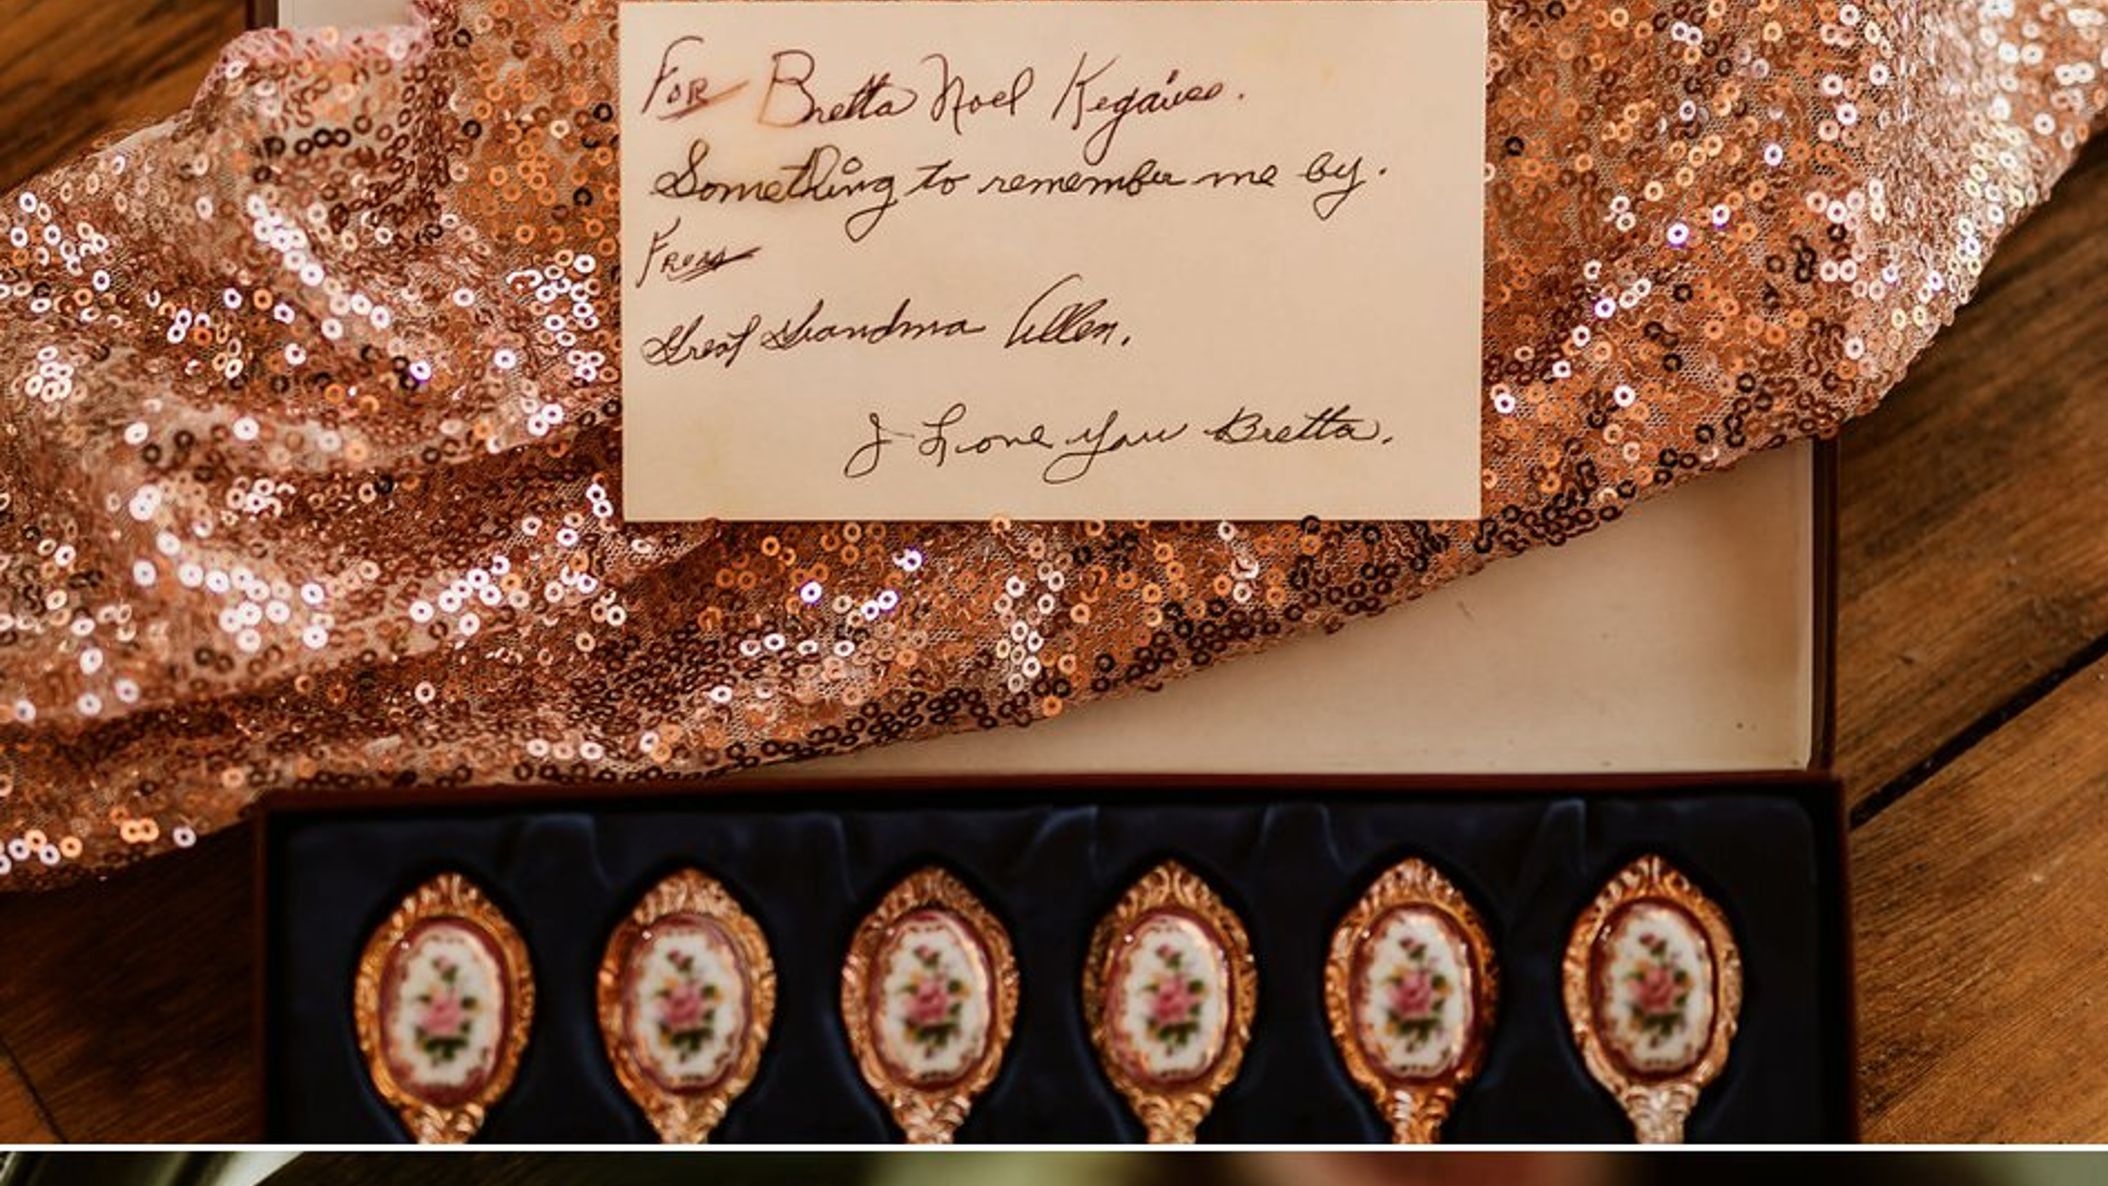 For Bretta Noel
Something to remember me by.
From
Great Grandma Allen.
I Love You Bretta.